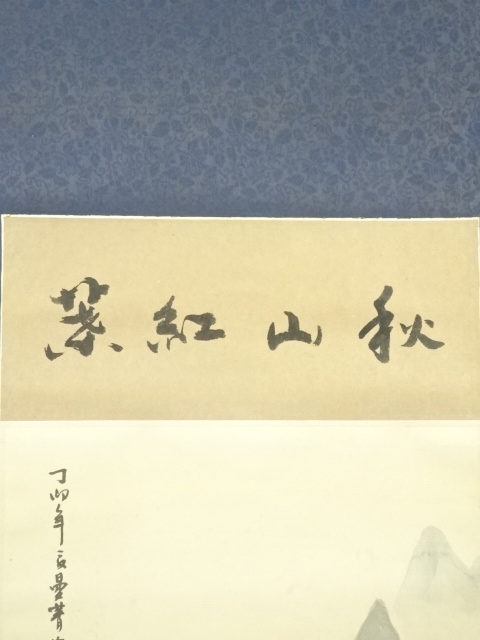 秋山紅葉
丁卯年